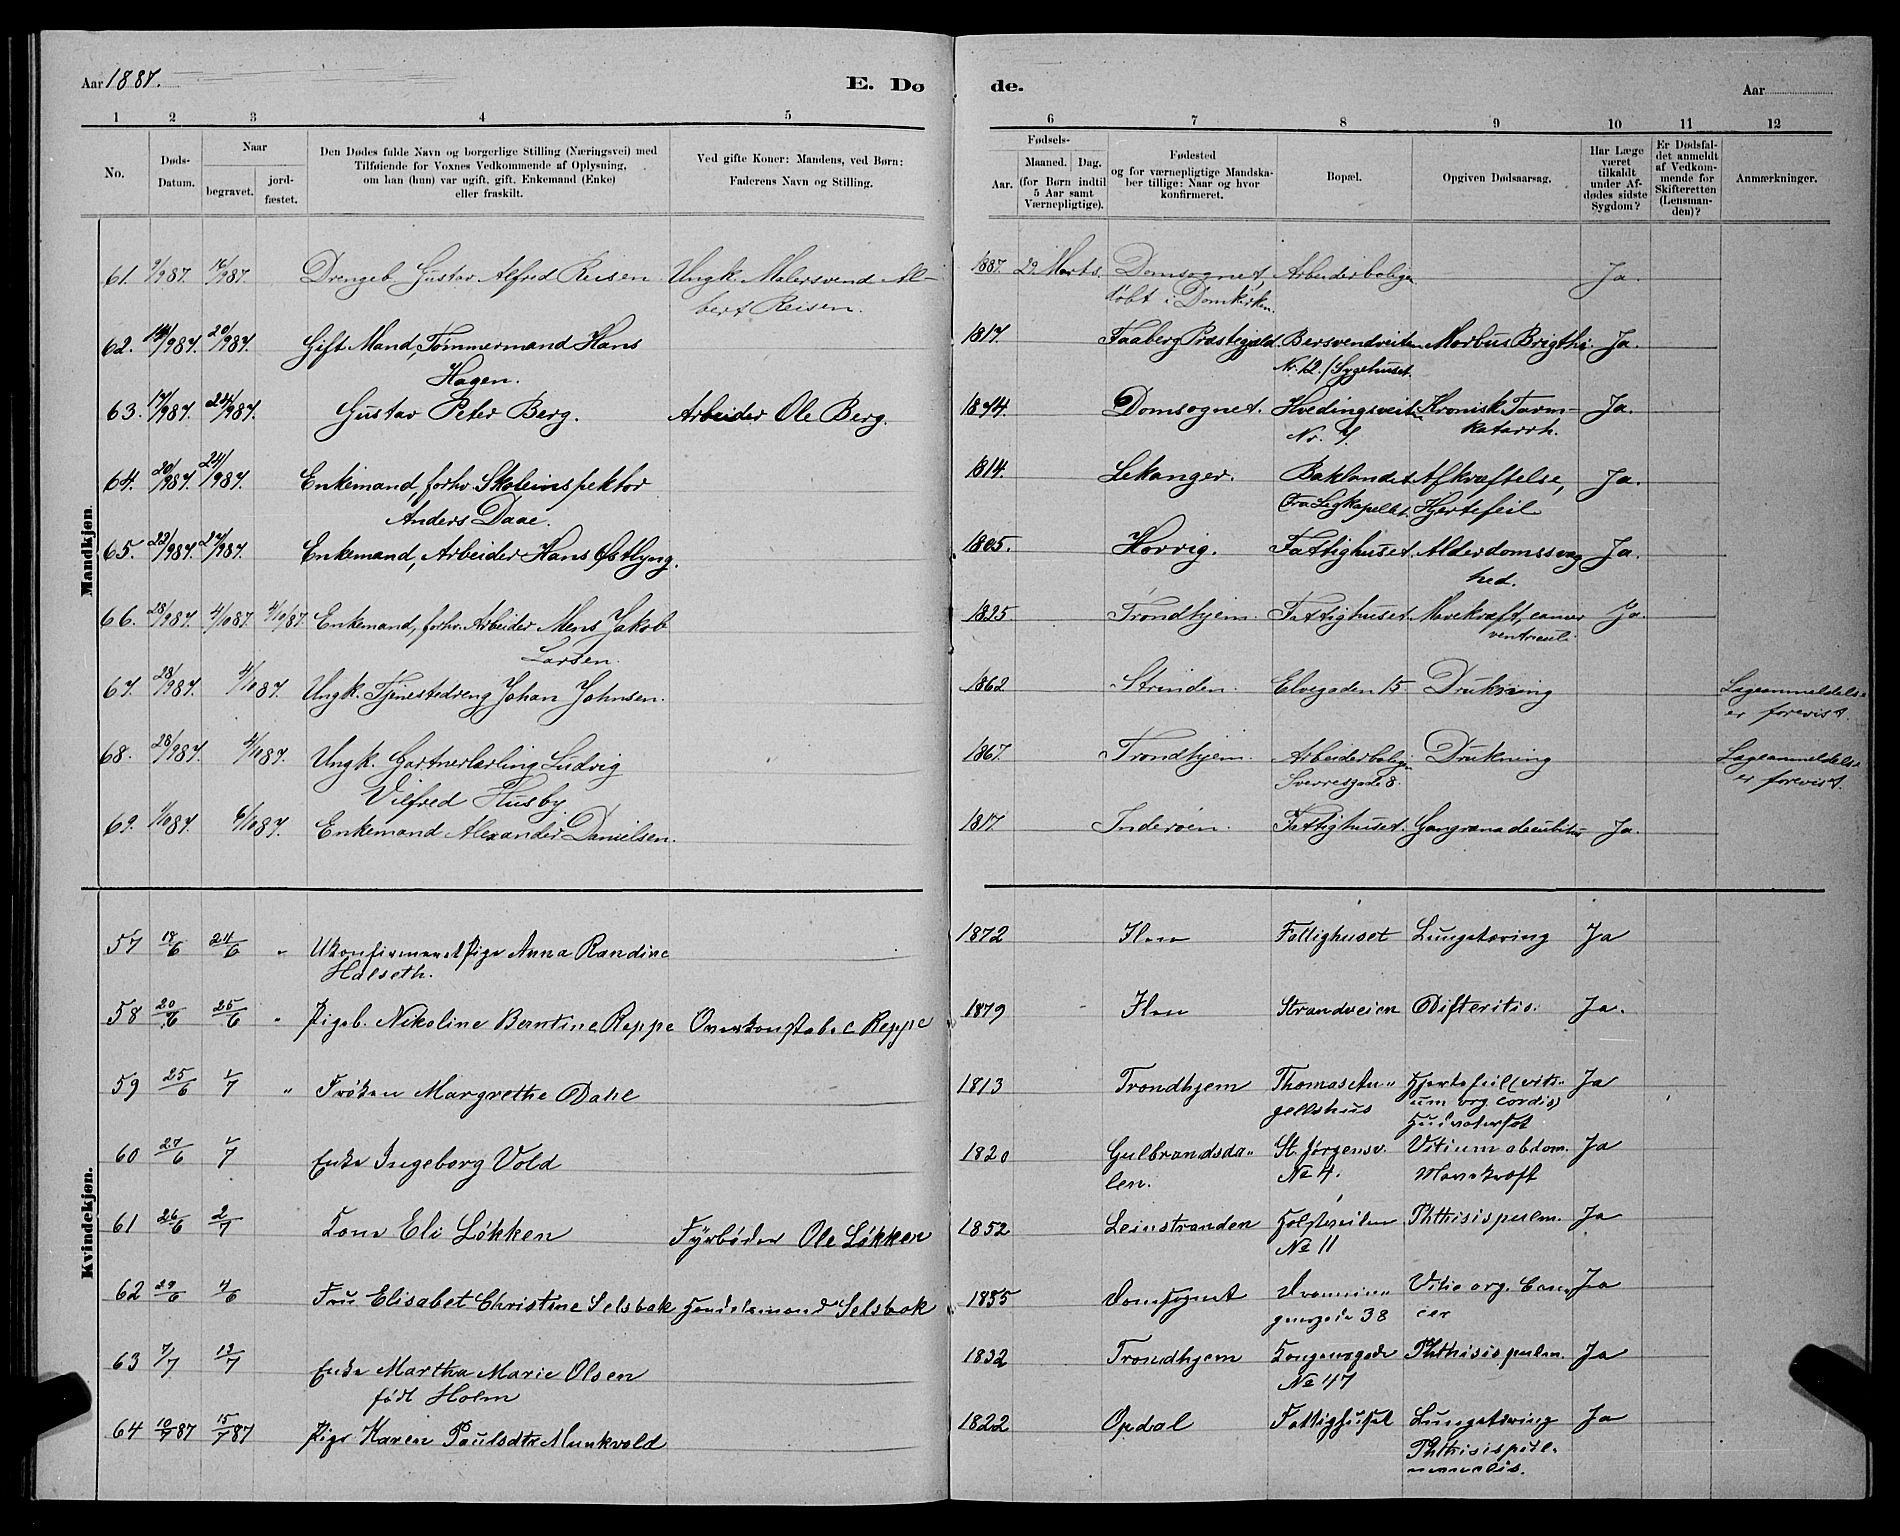 Aar 1887.
E. Dø
de.
Aar
1 2 3 4 5
6 7 8 9 10 11 12
No.
Døds-
Datum.
Naar
begravet.
jord-
fæstet.
Den Dødes fulde Navn og borgerlige Stilling (Næringsvei) med
Tilføiende for Voxnes Vedkommende af Oplysning,
om han (hun) var ugift, gift, Enkemand (Enke)
eller fraskilt.
Ved gifte Koner: Mandens, ved Børn:
Faderens Navn og Stilling.
Fødsels-
Aar.
Maaned. Dag.
(for Børn indtil
5 Aar samt
Værnepligtige).
Fødested
og for værnepligtige Mandska-
ber tillige: Naar og hvor
konfirmeret.
Bopæl.
Opgiven Dødsaarsag.
Har Læge
været
tilkaldt
under Af-
dødes sidste
Sygdom?
Er Dødsfal-
det anmeldt
af Vedkom-
mende for
Skifteretten
(Lensman-
den)?
Anmærkninger.
Mandkjøn.
61. 9/987. 16/987. Drengeb. Gustav Alfred Reisen Ungk. Malersvend Al- 1887. 29. Marts. Domsognet, Arbeiderbolig Ja.
bert Reisen. døbt i Domkirken.
62. 14/987. 20/987. Gift Mand, Tømmermand Hans 1817. Faaberg Præstegjæld. Bersvendveiten Morbus Brigthi. Ja.
Hagen. Nr. 12. /Sygehuset.
63. 17/987. 24/987. Gustav Peter Berg. Arbeider Ole Berg. 1874. Domsognet. Hvedingsveiten Kronisk Tarm- Ja.
Nr. 7. katarrh.
64. 20/987. 24/987. Enkemand, forhv. Skoleinspektør 1814. Lekanger. Baklandet Afkræftelse, Ja.
Anders Daae. fra Ligkapellet. Hjertefeil
65. 22/987. 27/987. Enkemand, Arbeider Hans Østlyng. 1805. Horrig. Fattighuset. Alderdomssvag Ja.
hed.
66. 28/987. 4/1087. 4/10/87. Enkemand, forhv. Arbeider Mens Jakob 1825. Trondhjem. Fattighuset. Mavekræft, cancer Ja.
Larsen. ventriculi.
67. 28/987. 4/1087. Ungk. Tjenestedreng Johan Johnsen. 1862 Strinden Elvegaden 15 Drukning Lægeanmeldelse
er forevist.
68. 28/987. 4/1087. Ungk. Gartnerlærling Ludvig 1867. Trondhjem. Arbeiderbolig Drukning Lægeanmeldelse
Vilfred Husby. Sverresgade 8. er forevist.
69. 1/1087. 6/1087. Enkemand Alexander Danielsen. 1817. Inderøen. Fattighuset. Gangræna decubitus Ja.
Kvindekjøn.
57 18/6 24/6 " Ukonfirmeret Pige Anna Randine 1872 Ilen Fattighuset Lungetæring Ja
Halseth.
58 20/6 25/6 " Pigeb. Nikoline Berntine Reppe Overkonstabel Reppe 1879 Ilen Strandveien Difteritis. Ja.
59 25/6 1/7 " Frøken Margrethe Dahl 1813 Trondhjem Thomas An" Hjertefeil (viti" Ja
gellshus um org. cordis)
60 27/6 1/7 Enke Ingeborg Vold 1820 Gulbrandsda" St. Jørgensv. Vitium abdom. Ja
len. No 4. Mavekræft
61 26/6 2/7 Kone Eli Løkken Fyrbøder Ole Løkken 1852 Leinstranden No 11 Phthisis pulm. Ja
62 29/6 4/6 Fru Elisabet Christine Selsbak Handelsmand Selsbak 1835 Domsognet Dronnin" Vitie org. Can" Ja
gensgade 38 cer
63 7/7 12/7 Enke Martha Marie Olsen 1832 Trondhjem Kongensgade Phthisis pulm. Ja
født Holm No 47
64 10/7 87 15/7 87 Pige Karen Paulsdtr Munkvold 1822 Opdal Fattighuset Lungetæring Ja
Phthisis pul"
monalis.